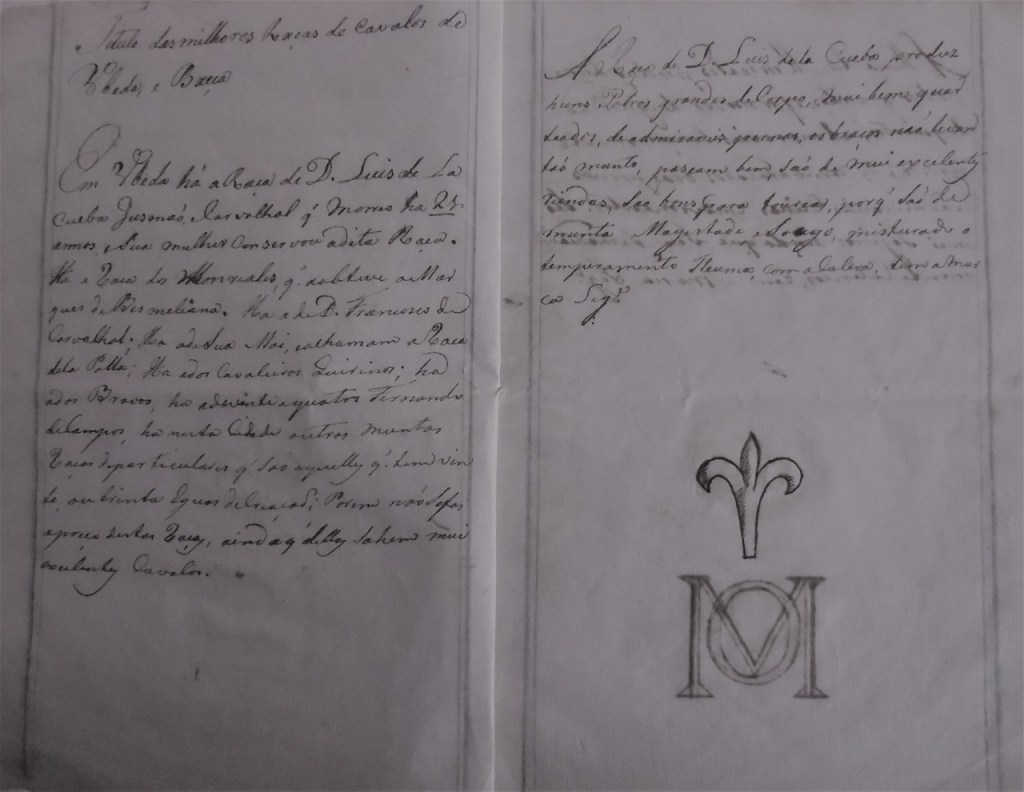 Titulo das milhores Raças de Cavalos de
Vbeda, e Baeça
Em Vbeda há a Raca de D. Luis de La
Cueba Carvalhal q' Morreo ha 25
annos e Sua mulher Conservou a dita Raça.
Ha a Raca dos Monreales, q' obteve o Mar
ques de Ha a de D. Francisco de
Carvalhal; Ha a de Sua Mai, e chamam a Raca
dela Ha a dos Cavaleiros Quirinos; ha
a dos Bravos, ha a de vinte e quatro Fernando
de Campos, ha nesta Cidade outras muntas
Raças de particulares q' são aquelles q' tem vin
te, ou trinta Eguas de criação; Porem não
estas Raças, ainda q' delles sahem mui
excelentes Cavalos.
A Raca de D. Luis de la Cueba produz
huns Potros grandes de Corpo, mui bem quar
teados, de admiraveis pernas, os braços não levan
tão munto, paseam bem são de mui excelentes
riendas, são bons para porq' são de
munta Magestade e misturado o
temperamento com a Colera, tem a mar
ca Seg.te
MO